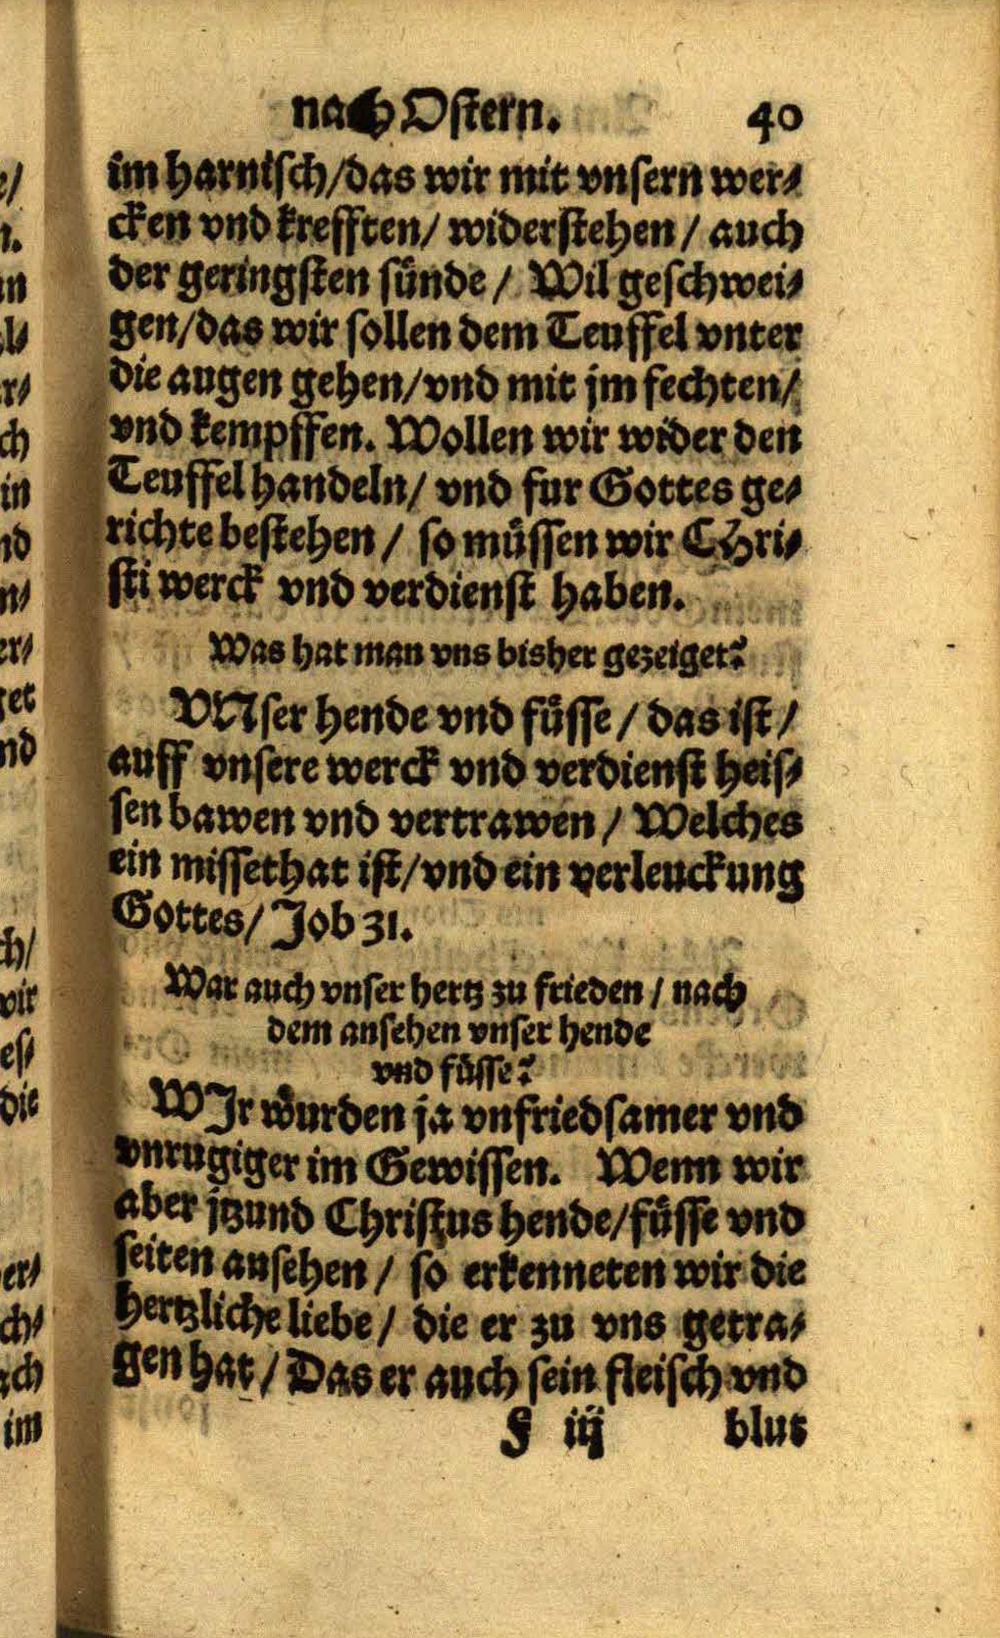 nach Ostern. 40
im harnisch/das wir mit vnsern wer⸗
cken vnd krefften/ widerstehen / auch
der geringsten sünde / Wil geschwei⸗
gen/das wir sollen dem Teuffel vnter
die augen gehen/vnd mit jm fechten/
vnd kempffen. Wollen wir wider den
Teuffel handeln/ vnd fur Gottes ge⸗
richte bestehen / so müssen wir CHri⸗
sti werck vnd verdienst haben.
Was hat man vns bisher gezeiget?
VNser hende vnd füsse / das ist /
auff vnsere werck vnd verdienst heis⸗
sen bawen vnd vertrawen / Welches
ein missethat ist/vnd ein verleuckung
Gottes/ Job 31.
War auch vnser hertz zu frieden / nach
dem ansehen vnser hende
vnd füsse?
WJr würden ja vnfriedsamer vnd
vnrugiger im Gewissen. Wenn wir
aber jtzund Christus hende/füsse vnd
seiten ansehen / so erkenneten wir die
hertzliche liebe / die er zu vns getra⸗
gen hat / Das er auch sein fleisch vnd
F iij blut